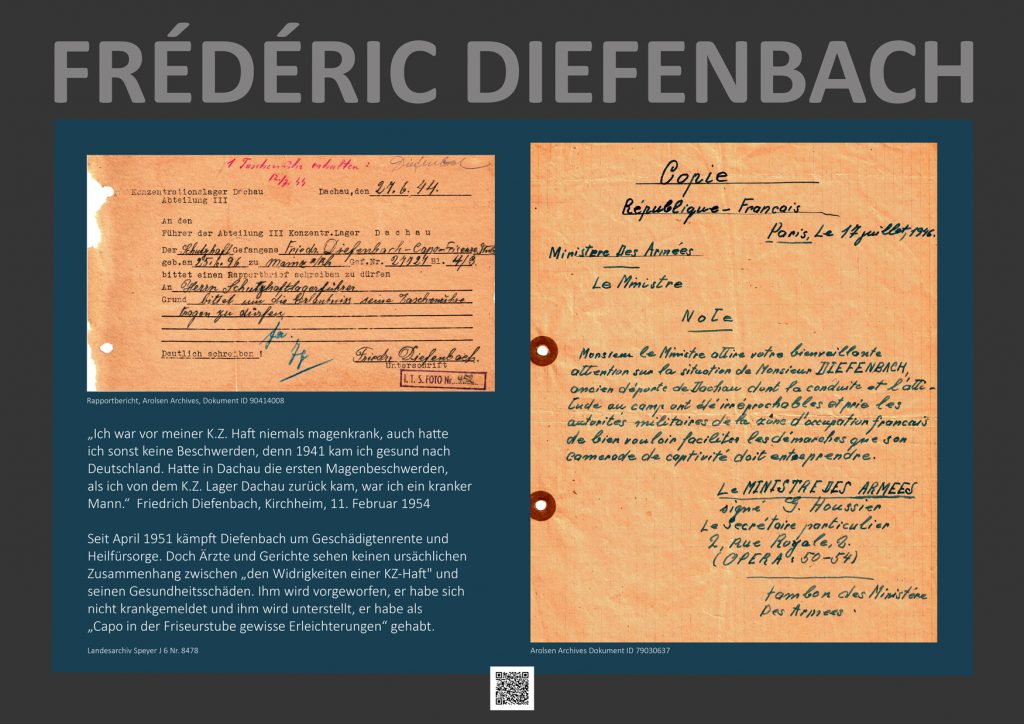 FRÉDÉRIC DIEFENBACH
1 Taschenuhr erhalten :
Diefenbach
Konzentrationslager Dachau
Abteilung III
Dachau,den 27.6.44.
An den
Führer der Abteilung III Konzentr.Lager Dachau
Der Schutzhaft Gefangene Friedr. Diefenbach-Capo-Friseur
geb.am 25.6.96 zu Mainz a/Rh Gef.Nr. Bl. 4/3
bittet einen Rapportbrief schreiben zu dürfen
An Herrn Schutzhaftlagerführer
Grund bittet um die Erlaubniss seine Taschenuhre
tragen zu dürfen
ja.
Deutlich schreiben !
Friedr. Diefenbach.
Unterschrift
I. T. S. FOTO Nr.
Rapportbericht, Arolsen Archives, Dokument ID 90414008
„Ich war vor meiner K.Z. Haft niemals magenkrank, auch hatte
ich sonst keine Beschwerden, denn 1941 kam ich gesund nach
Deutschland. Hatte in Dachau die ersten Magenbeschwerden,
als ich von dem K.Z. Lager Dachau zurück kam, war ich ein kranker
Mann.“ Friedrich Diefenbach, Kirchheim, 11. Februar 1954
Seit April 1951 kämpft Diefenbach um Geschädigtenrente und
Heilfürsorge. Doch Ärzte und Gerichte sehen keinen ursächlichen
Zusammenhang zwischen „den Widrigkeiten einer KZ-Haft" und
seinen Gesundheitsschäden. Ihm wird vorgeworfen, er habe sich
nicht krankgemeldet und ihm wird unterstellt, er habe als
„Capo in der Friseurstube gewisse Erleichterungen“ gehabt.
Landesarchiv Speyer J 6 Nr. 8478
Copie
République-Francais
Paris, Le 17 juillet, 1946.
Ministere Des Armées
Le Ministre
Note
Monsieur le Ministre attire votre bienveillante
attention sur la situation de Monsieur DIEFENBACH,
ancien déporte de Dachau dont la conduite et l'atti-
tude au camp ont été irréprochables et prie les
autorités militaires de la zône d'occupation francais
de bien vouloir faciliter les démarches que son
camerode de captivité doit entreprendre.
Le MINISTRE DES ARMEES
signé G. Houssier
Le Secrétaire particulier
2, Rue Royale, 2.
(OPERA : 50-54)
tambon des Ministére
Des Armees .
Arolsen Archives Dokument ID 79030637